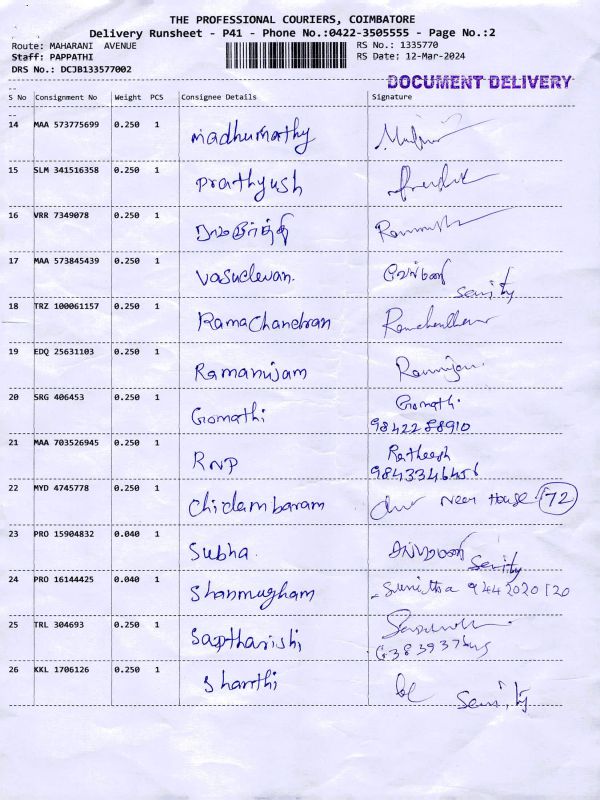 THE PROFESSIONAL COURIERS, COIMBATORE
Delivery Runsheet - P41 - Phone No.:0422-3505555 - Page No.:2
Route: MAHARANI AVENUE
Staff: PAPPATHI
DRS No.: DCJB133577002
RS No.: 1335770
RS Date: 12-Mar-2024
DOCUMENT DELIVERY
S No Consignment No Weight PCS Consignee Details Signature
14 MAA 573775699 0.250 1 Madhumathy
15 SLM 341516358 0.250 1 Prathyush
16 VRR 7349078 0.250 1
17 MAA 573845439 0.250 1 Vasudevan.
18 TRZ 100061157 0.250 1 RamaChandran
19 EDQ 25631103 0.250 1 Ramanujam
20 SRG 406453 0.250 1 Gomathi Gomathi
21 MAA 703526945 0.250 1 RNP Ratheesh
9843346456
22 MYD 4745778 0.250 1 Chidambaram Near House 72
23 PRO 15904832 0.040 1 Subha.
24 PRO 16144425 0.040 1 Shanmugham Sunitha 9442020120
25 TRL 304693 0.250 1 Saptharishi
26 KKL 1706126 0.250 1 Shanthi